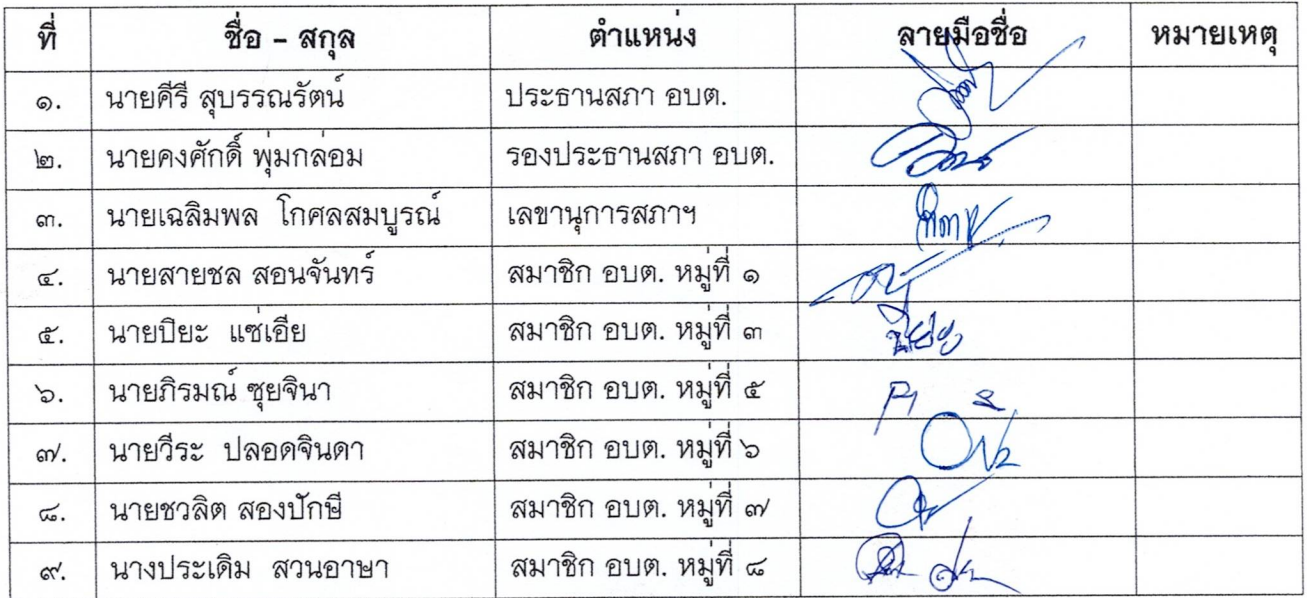 ที่ ชื่อ - สกุล ตำแหน่ง ลายมือชื่อ หมายเหตุ
๑. นายคีรี สุบรรณรัตน์ ประธานสภา อบต.
๒. นายคงศักดิ์ พุ่มกล่อม รองประธานสภา อบต.
๓. นายเฉลิมพล โกศลสมบูรณ์ เลขานุการสภาฯ
๔. นายสายชล สอนจันทร์ สมาชิก อบต. หมู่ที่ ๑
๕. นายปิยะ แซ่เอีย สมาชิก อบต. หมู่ที่ ๓
๖. นายภิรมณ์ ซุยจินา สมาชิก อบต. หมู่ที่ ๕
๗. นายวีระ ปลอดจินดา สมาชิก อบต. หมู่ที่ ๖
๘. นายชวลิต สองปักษี สมาชิก อบต. หมู่ที่ ๗
๙. นางประเดิม สวนอาษา สมาชิก อบต. หมู่ที่ ๘